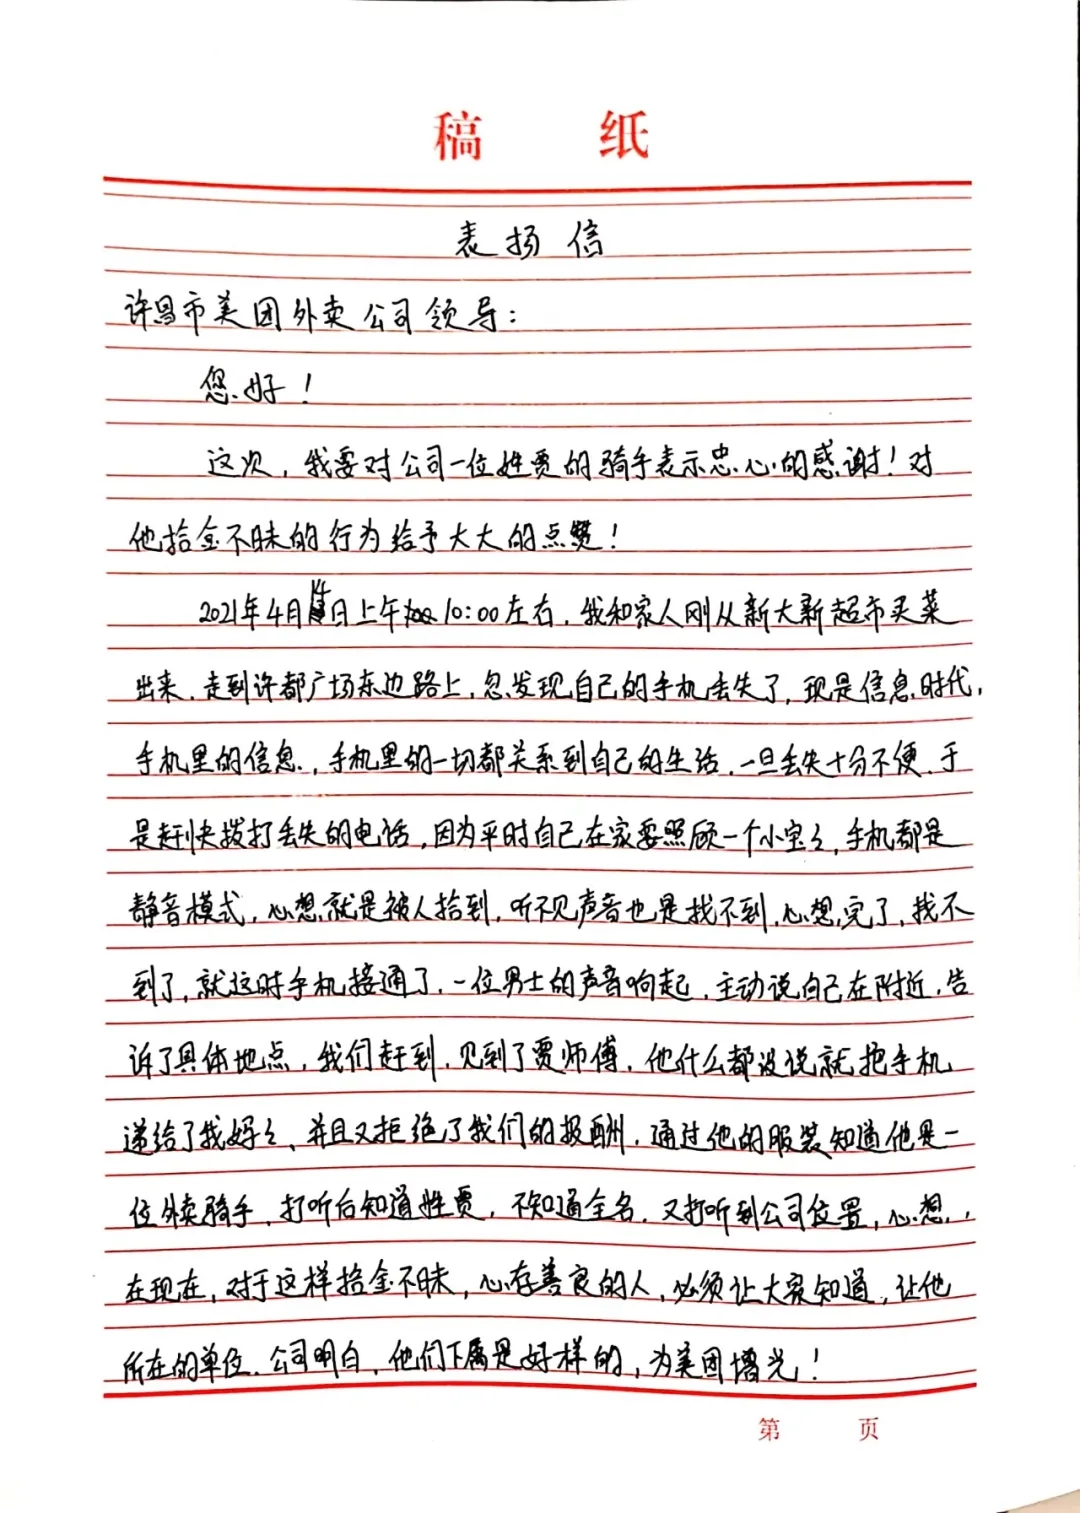 稿 纸
表扬信
许昌市美团外卖公司领导：
您好！
这次，我要对公司一位姓贾的骑手表示忠心的感谢！对
他拾金不昧的行为给予大大的点赞！
2021年4月14日上午10:00左右，我和家人刚从新大新超市买菜
出来，走到许都广场东边路上，忽发现自己的手机丢失了，现是信息时代，
手机里的信息，手机里的一切都关系到自己的生活，一旦丢失十分不便，于
是赶快拨打丢失的电话，因为平时自己在家要照顾一个小宝々，手机都是
静音模式，心想就是被人拾到，听不见声音也是找不到，心想，完了，找不
到了，就这时手机接通了，一位男士的声音响起，主动说自己在附近，告
诉了具体地点，我们赶到，见到了贾师傅，他什么都没说就把手机
递给了我妈々、并且又拒绝了我们的报酬，通过他的服装知道他是一
位外卖骑手，打听后知道姓贾，不知道全名，又打听到公司位置，心想，
在现在，对于这样拾金不昧，心存善良的人，必须让大家知道，让他
所在的单位、公司明白，他们下属是好样的，为美团增光！
第 页